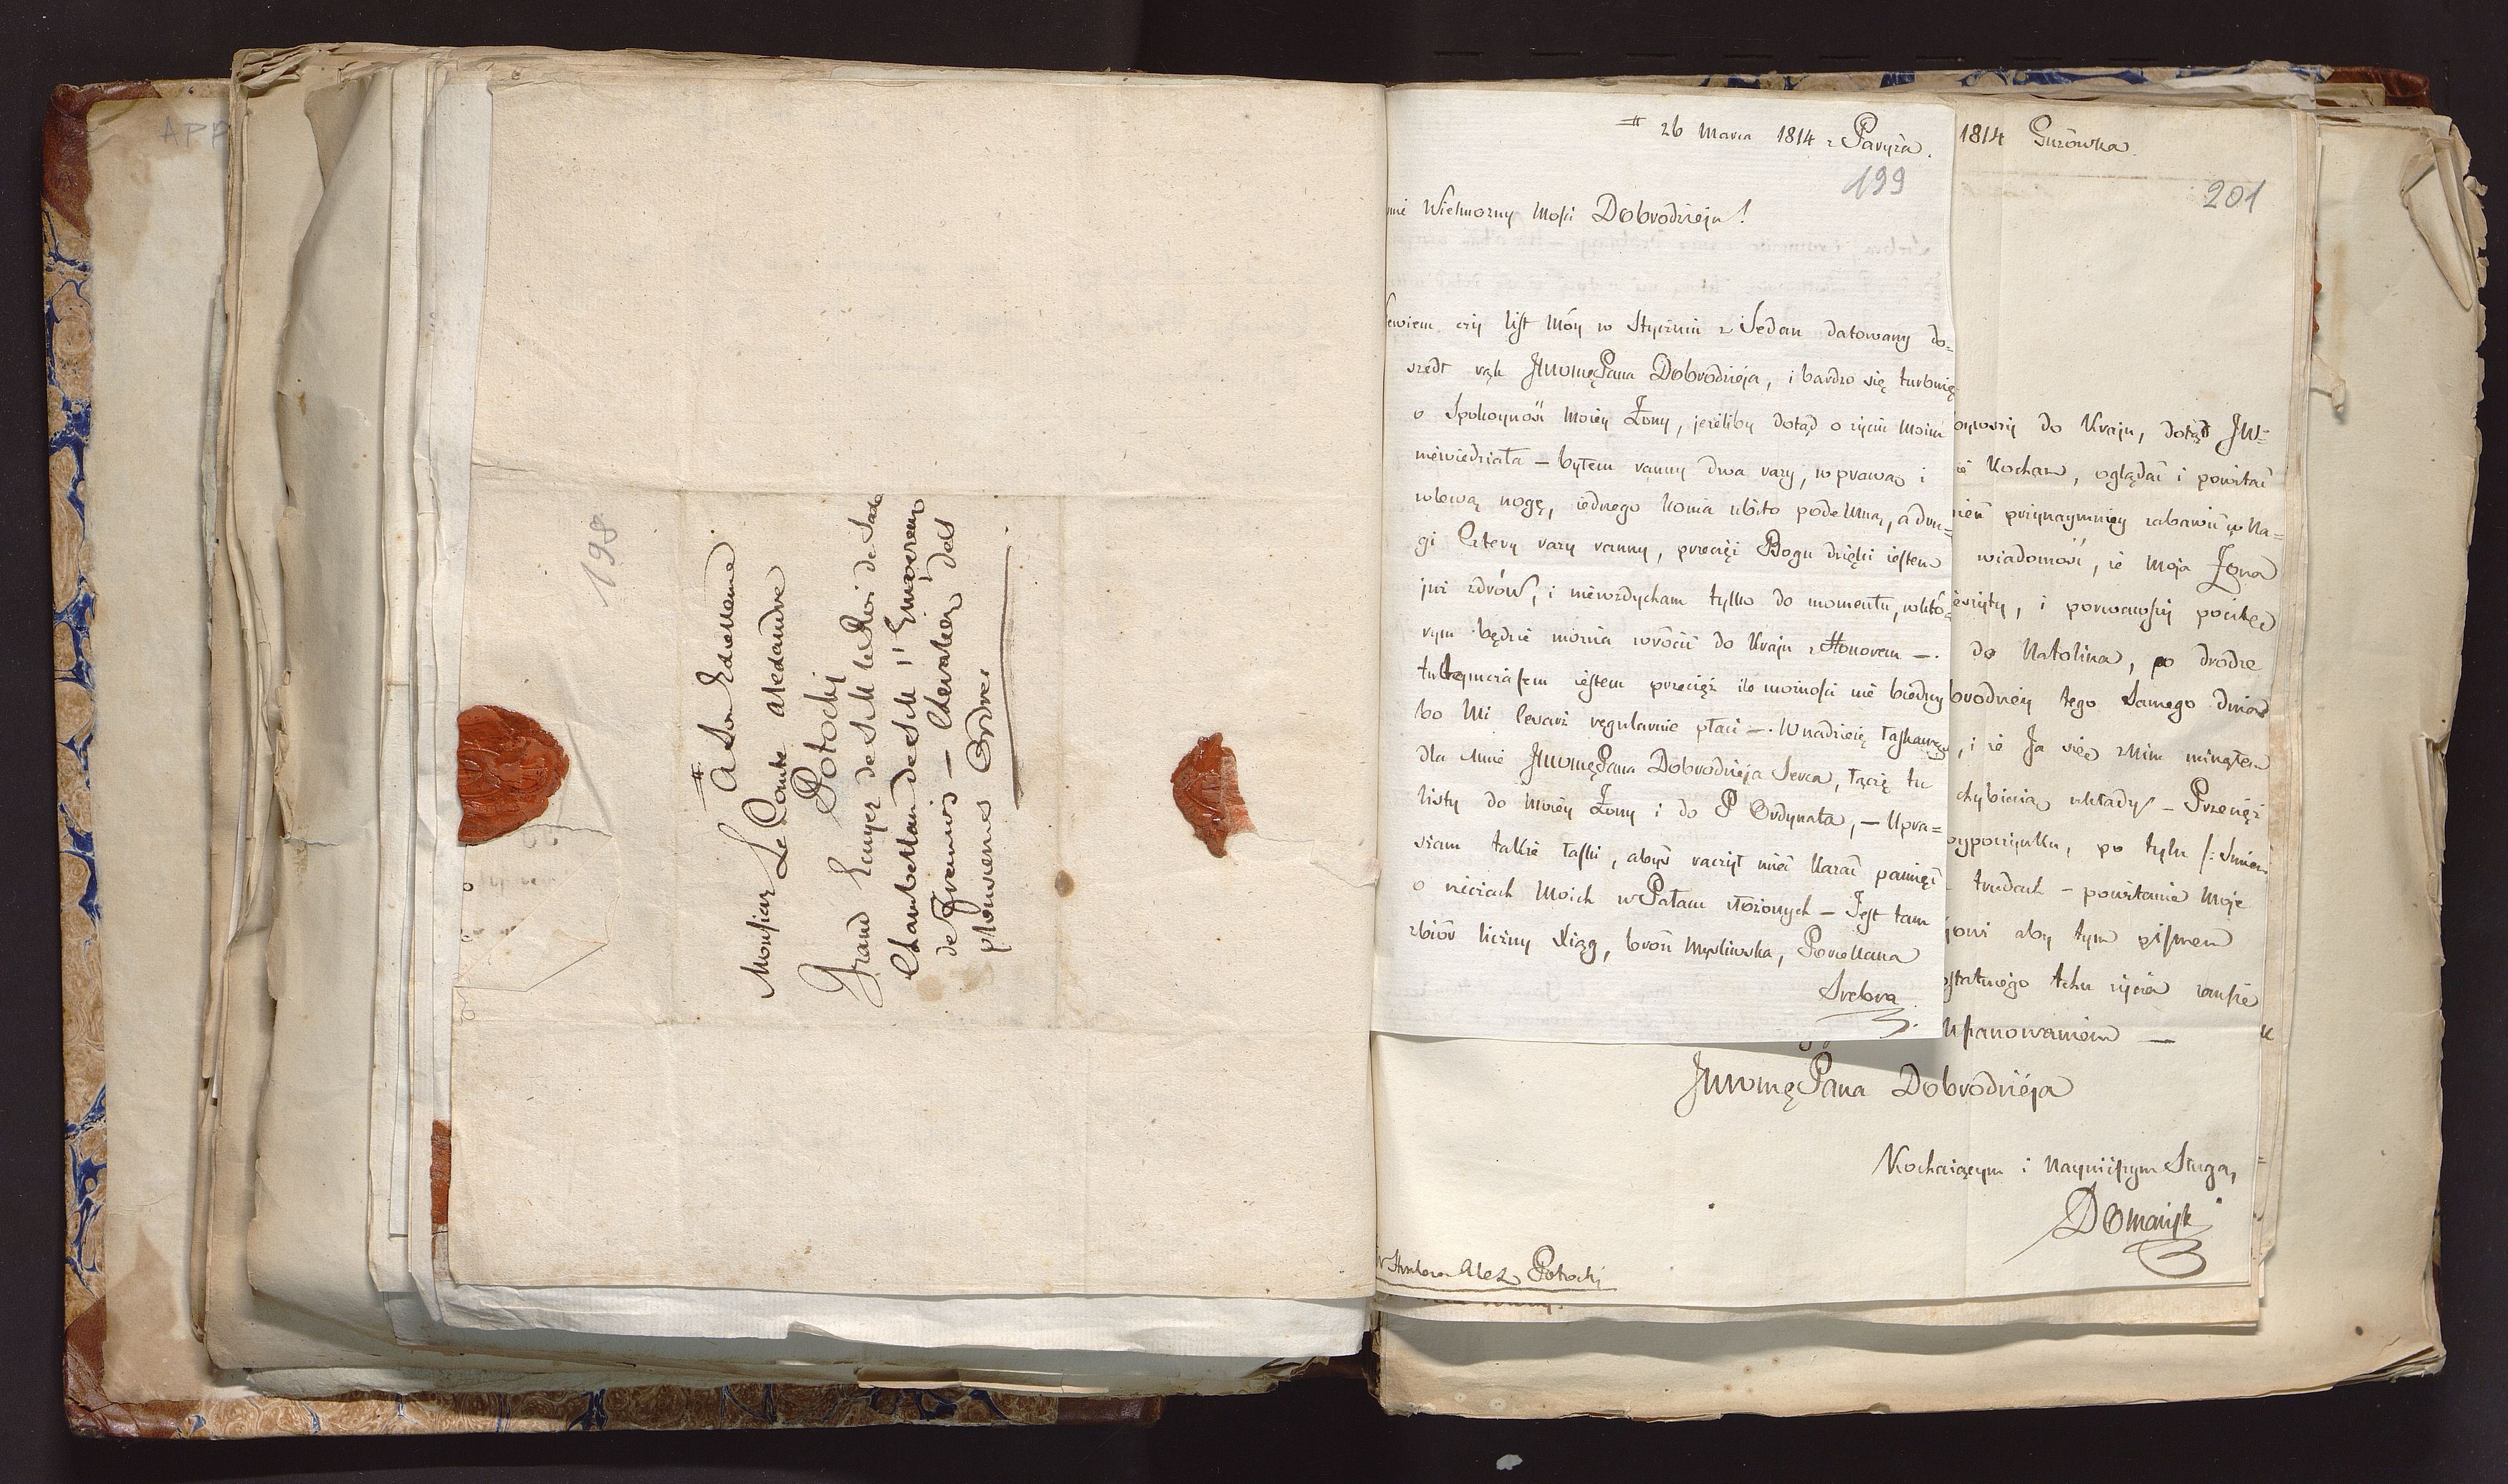 APP
198
à Son Excellence
Monsieur Le Comte Alexandre
Potocki
Grand Ecuyer de S M le Roi de Saxe
Chambellan de S M l'Empereur
de Francais — Chevalier des
plousieures Ordres
26 Marca 1814 z Paryża.
199
Wielmożny Mości Dobrodzieju!
czy list móy w Styczniu z Sedan datowany do=
szedł rąk JWWgo Pana Dobrodzieja, i bardzo się turbuię
o Spokoyność moiéy Żony, jeżeliby dotąd o życiu moim
niewiedziała — byłem ranny dwa razy, w prawą i
w lewą nogę, iednego konia ubito podemną, a dru=
gi cztery razy ranny, przecięż Bogu dzięki iestem
już zdrów, i niewzdycham tylko do momentu, w któ=
rym będzie można wrócić do Kraju z Honorem —.
tymczasem iestem przecięż ile możności nie biedny
bo Mi Cesarz regularnie płaci —. W nadzieię łaskawego
dla Mnie JWWgo Pana Dobrodzieja Serca, łączę tu
listy do Moiéy Żony i do P Ordynata, — Upra=
szam także łaski, abyś raczył mieć kazać pamięć
o rzeczach Moich w Pałacu złożonych — Jest tam
zbiór liczny Xiąg, broń Myśliwska, Porcellana
Srebra.
1814 Gurówka
201
do Kraju, dotąd JW=
Kocham, oglądać i powitać
przynaymniey zabawić w Na=
wiadomość, że Moja Żona
i porwawszy pocztę
do Natolina, po drodze
brodziéy tego Samego dnia
, i że Ja się z Nim minąłem
chybiaią układy — Przecięż
wypoczynku, po tylu
trudach — powitanie Moje
aby tym pismem
ostatniego tchu życia zawsze
Uszanowaniem —
JWWgo Pana Dobrodzieja
Kochaiącym i Nayniższym Sługą,
Domańsk
Alex Potocki